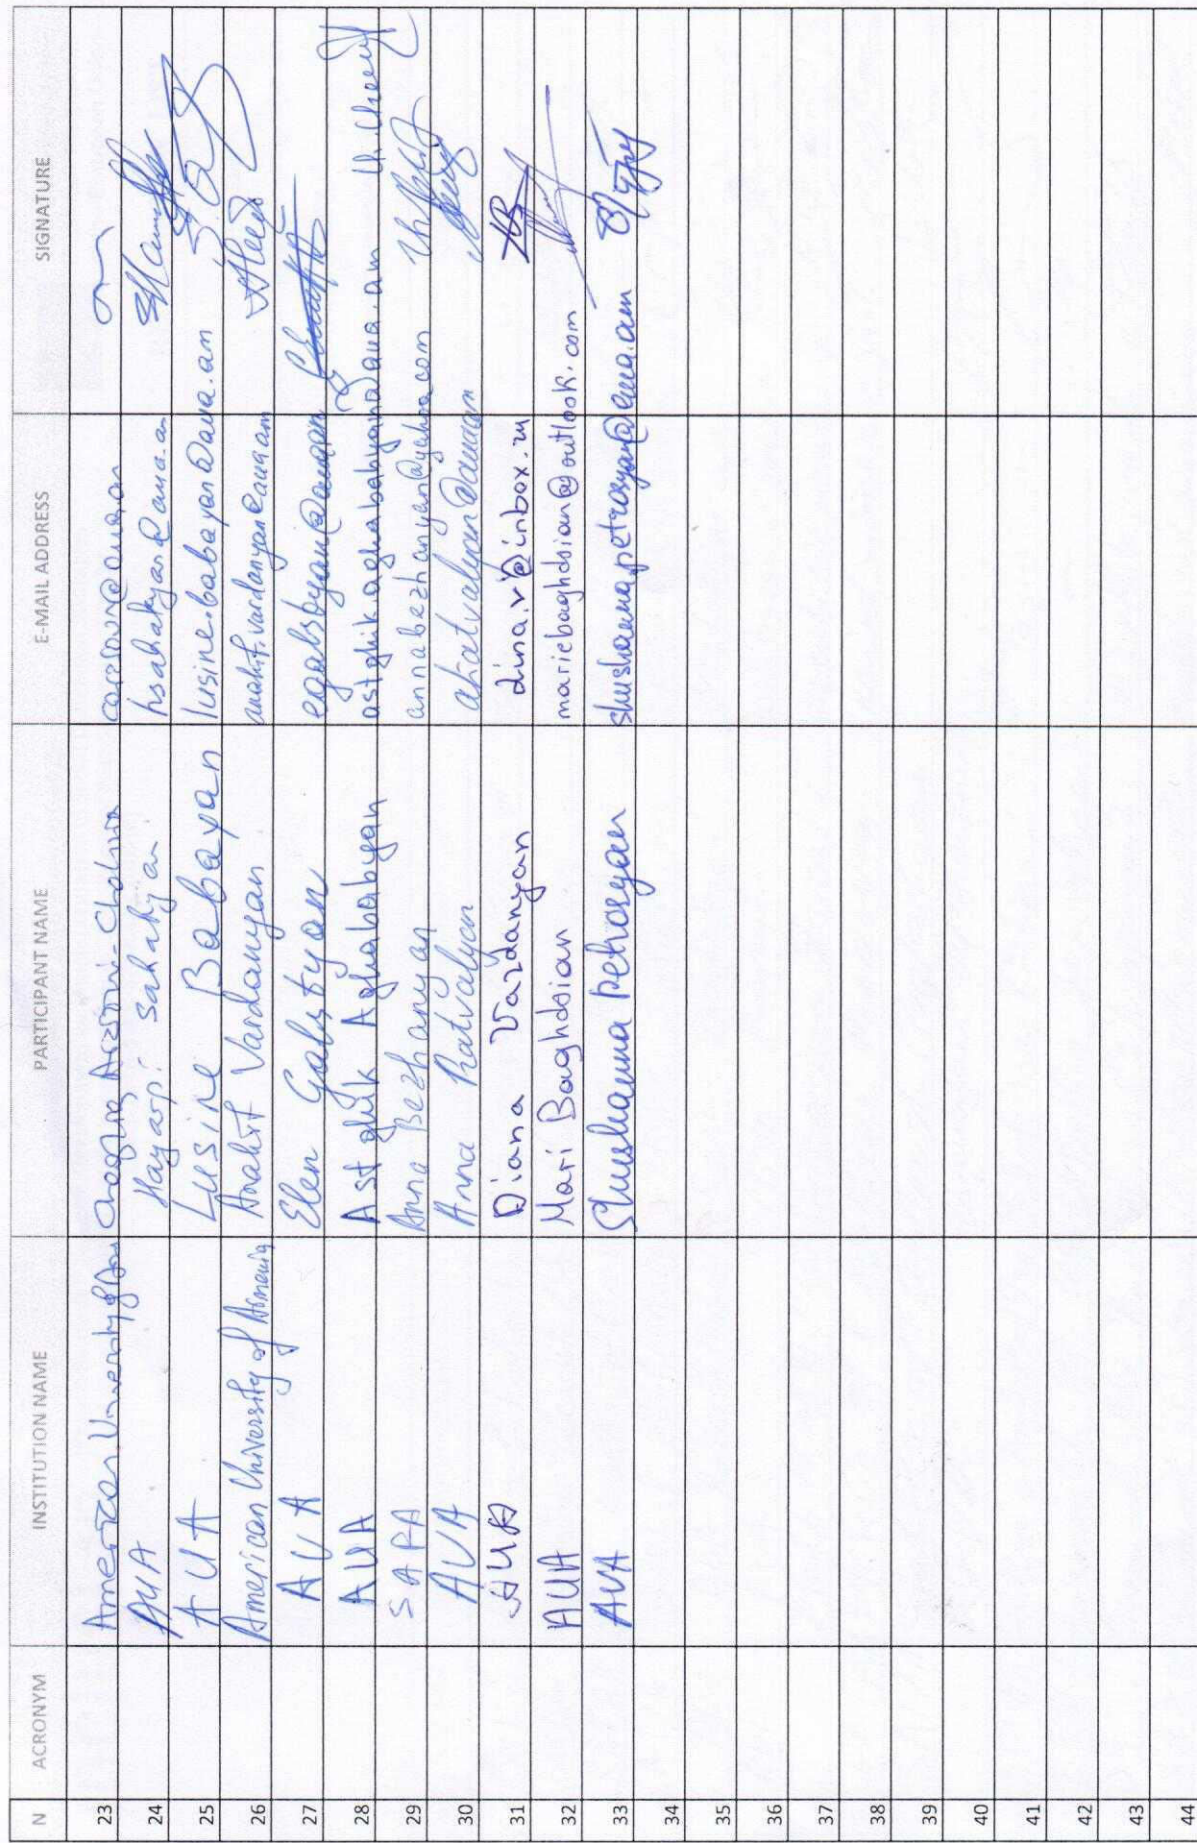 N ACRONYM INSTITUTION NAME PARTICIPANT NAME E-MAIL ADDRESS SIGNATURE
23 American University of
24 AUA Hayarpi Sahakyan hsahakyan@aua.am
25 AUA Lusine Babayan lusine.babayan@aua.am
26 American University of Armenia Anahit Vardanyan anahit.vardanyan@aua.am
27 AUA Elen Galstyan egalstyan@aua.am
28 AUA Astghik Aghababyan astghik.aghababyan@aua.am
29 Anna Bezhanyan annabezhanyan@yahoo.com
30 AUA Anna
31 AUA Diana Vardanyan dina.v@inbox.ru
32 AUA Mari Baghdoian mariebaghdoian@outlook.com
33 AUA Shushanna Petrosyan shushanna.petrosyan@aua.am
34
35
36
37
38
39
40
41
42
43
44